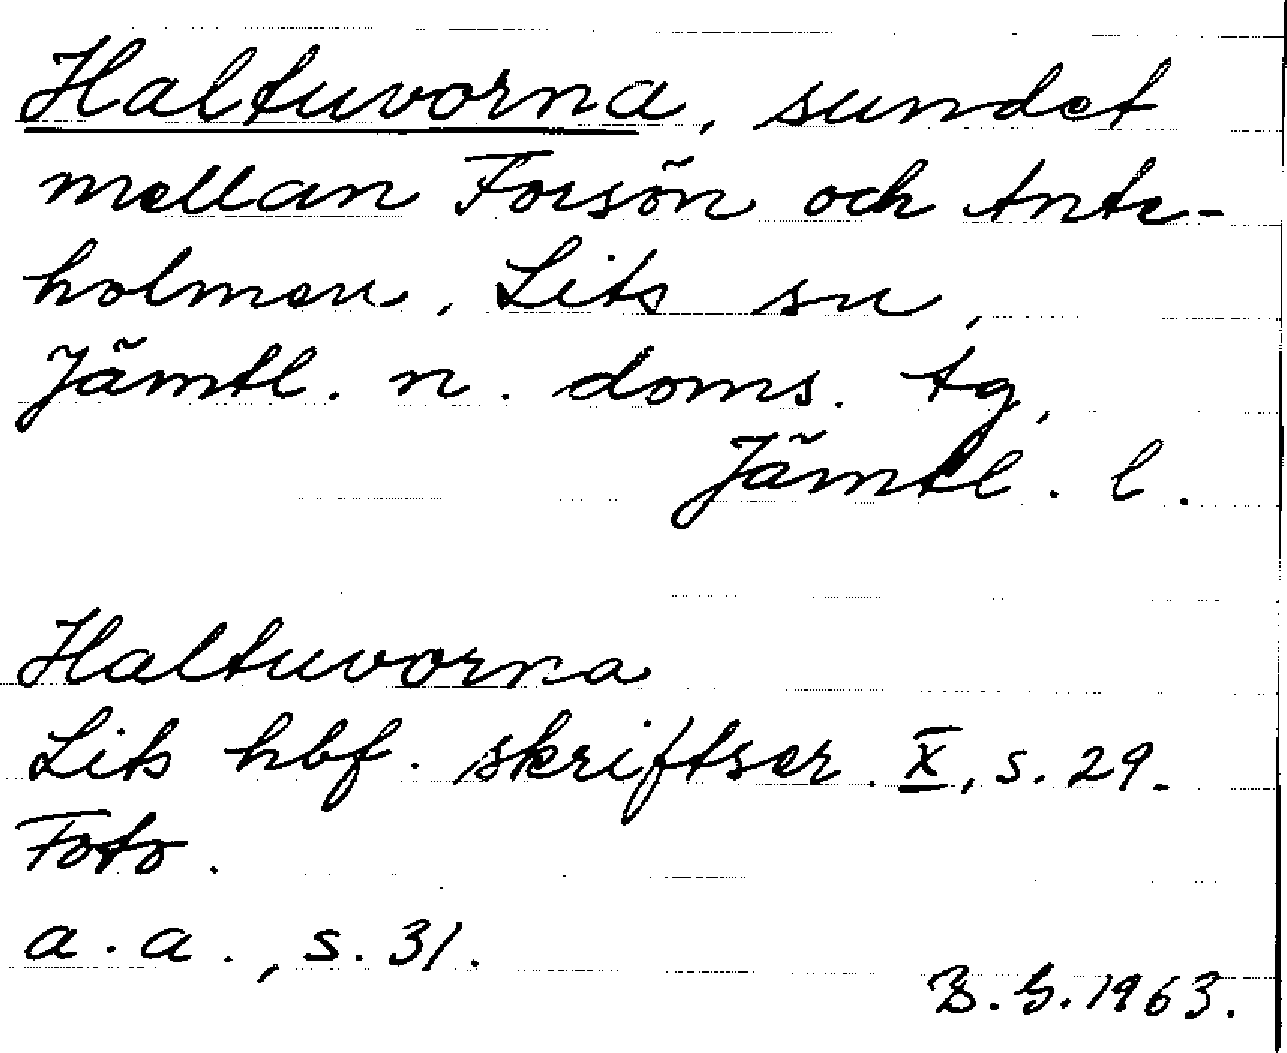 Haltuvorna, sundet
mellan Forsön och Ante-
holmen, Lits sn,
Jämtl. n. doms. tg,
Jämtl. l.
Haltuvorna
Lits hbf. skriftser. X, s. 29.
Foto.
a. a., s. 31.
B. G. 1963.